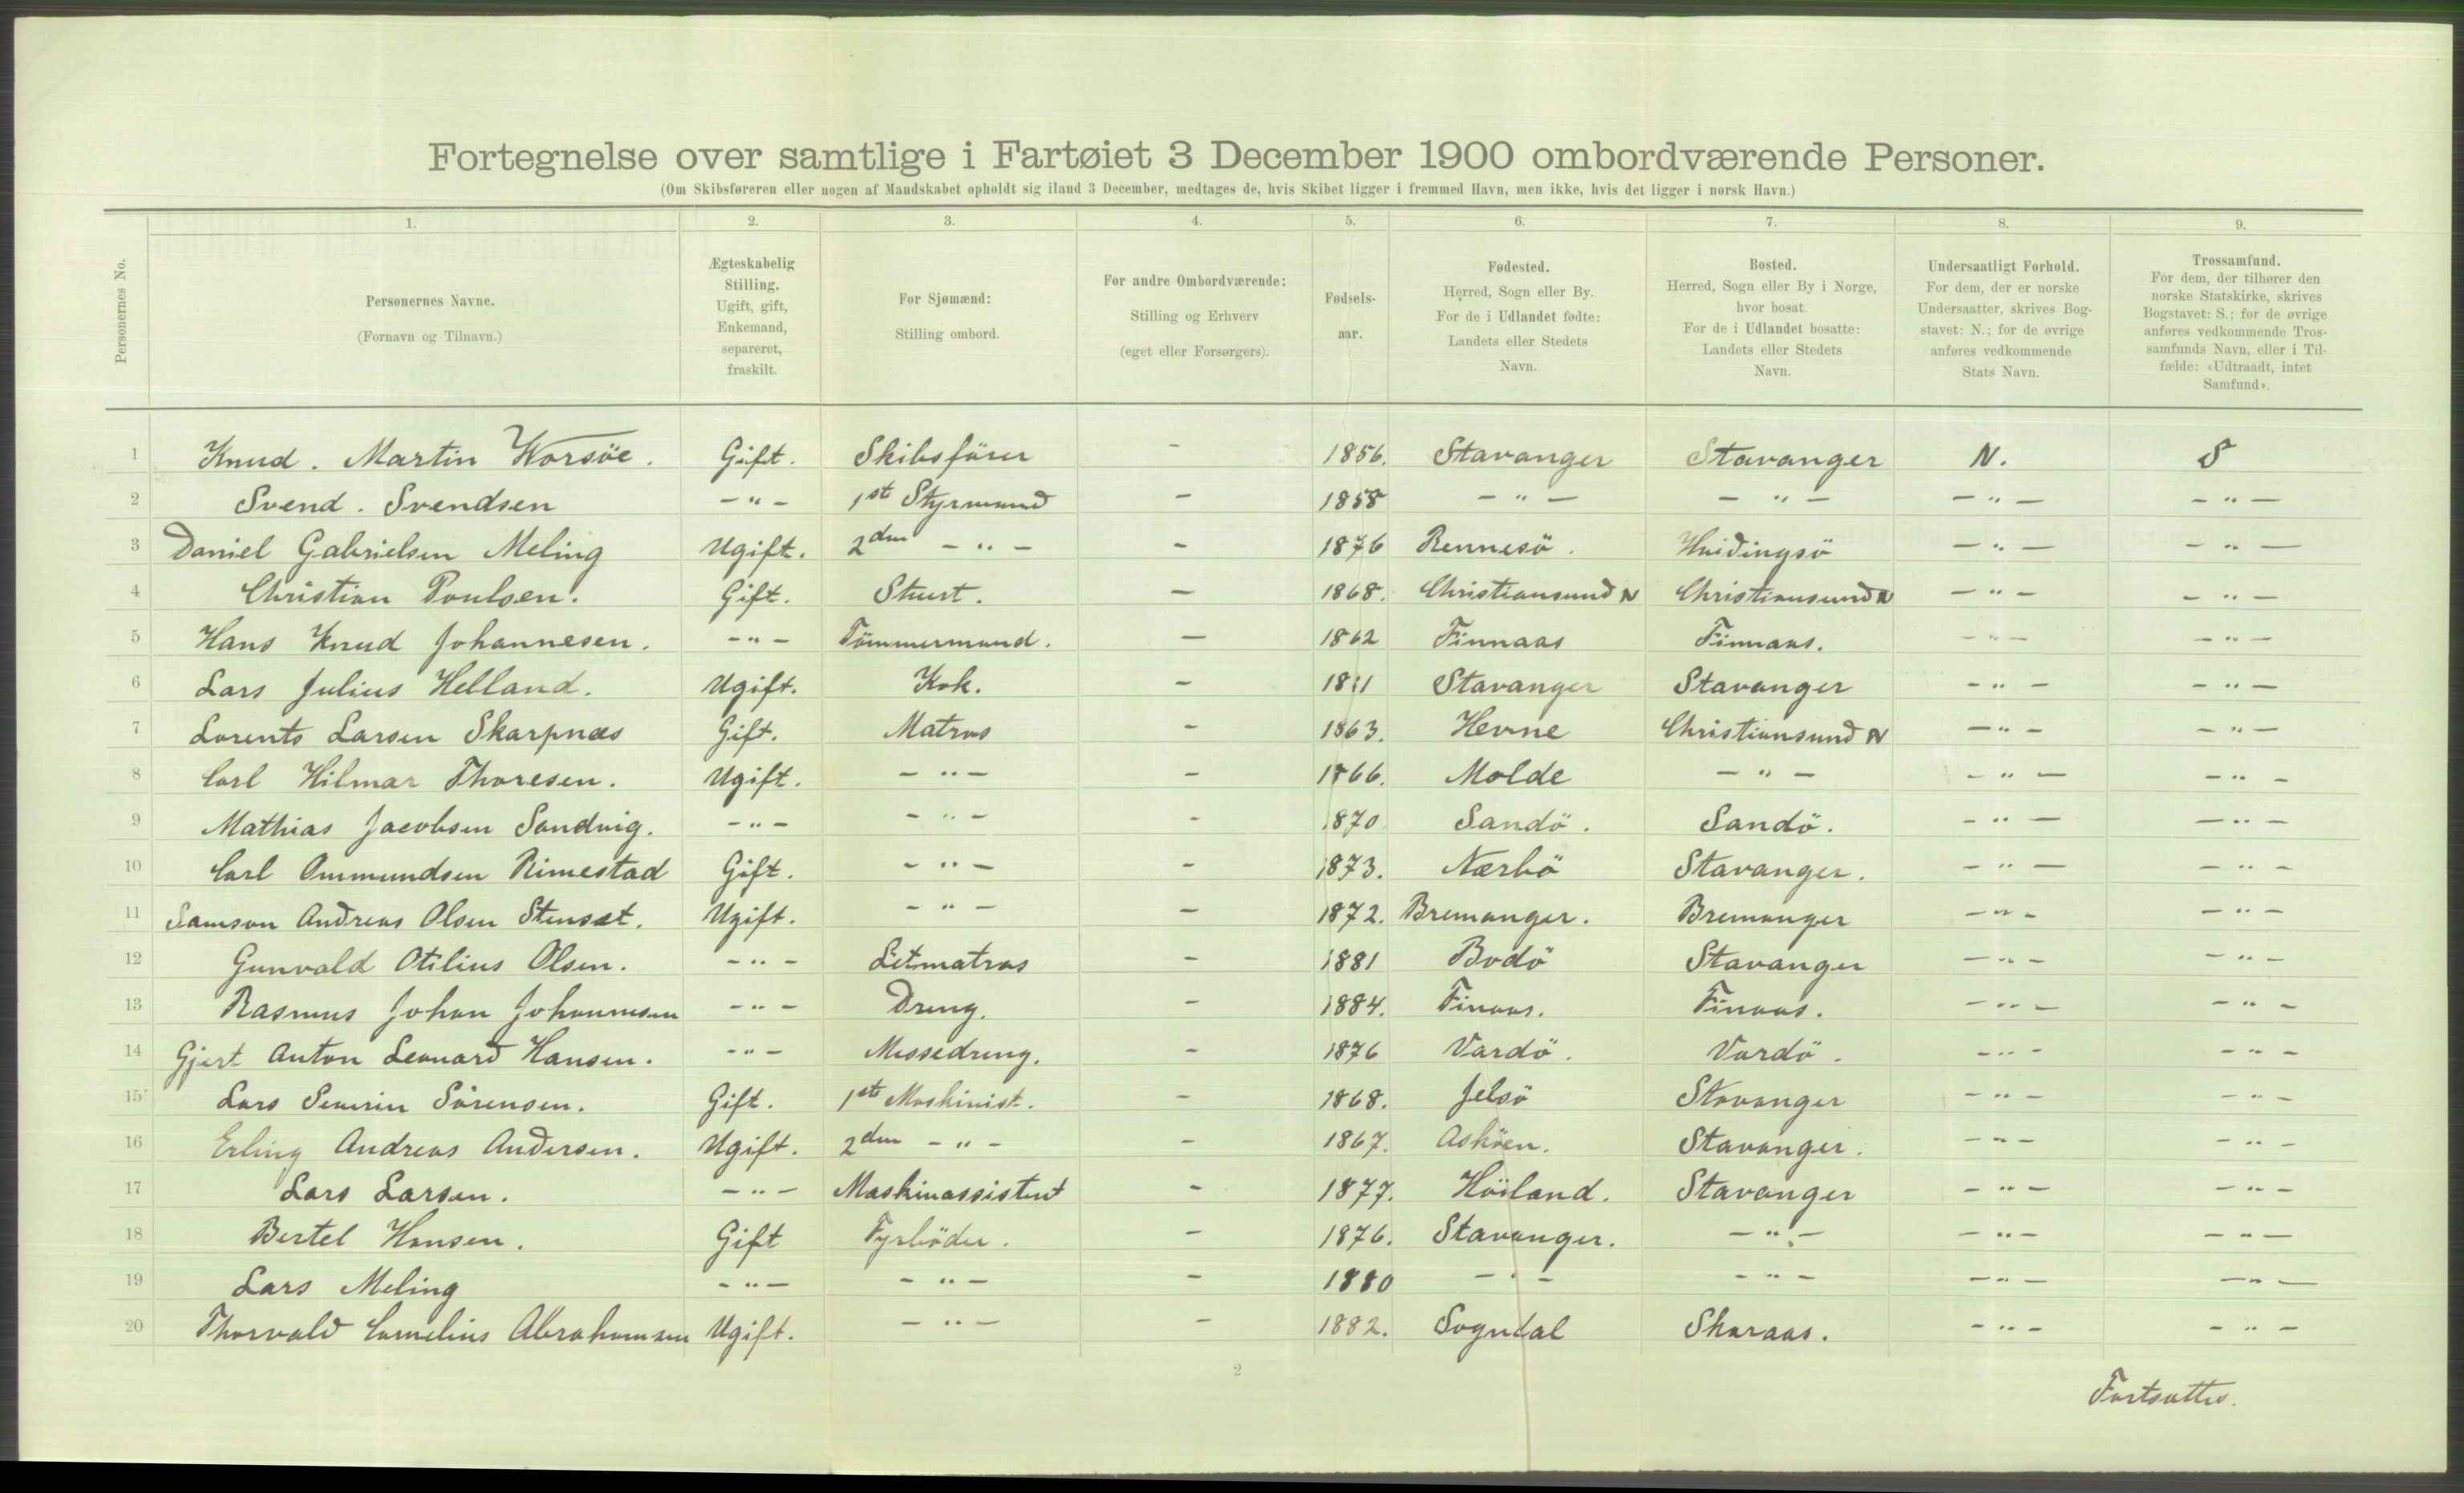 Fortegnelse over samtlige i Fartøiet 3 December 1900 ombordværende Personer.
(Om Skibsføreren eller nogen af Mandskabet opholdt sig iland 3 December, medtages de, hvis Skibet ligger i fremmed Havn, men ikke, hvis det ligger i norsk Havn.)
Personernes No.
1. 2. 3. 4. 5. 6. 7. 8. 9.
Personernes Navne.
(Fornavn og Tilnavn.)
Ægteskabelig
Stilling.
Ugift, gift,
Enkemand,
separeret,
fraskilt.
For Sjømænd:
Stilling ombord.
For andre Ombordværende:
Stilling og Erhverv
(eget eller Forsørgers).
Fødsels-
aar.
Fødested.
Herred, Sogn eller By.
For de i Udlandet fødte:
Landets eller Stedets
Navn.
Bosted.
Herred, Sogn eller By i Norge,
hvor bosat.
For de i Udlandet bosatte:
Landets eller Stedets
Navn.
Undersaatligt Forhold.
For dem, der er norske
Undersaatter, skrives Bog-
stavet: N.; for de øvrige
anføres vedkommende
Stats Navn.
Trossamfund.
For dem, der tilhører den
norske Statskirke, skrives
Bogstavet: S.; for de øvrige
anføres vedkommende Tros-
samfunds Navn, eller i Til-
fælde: «Udtraadt, intet
Samfund».
1 Knud. Martin Worsöe. Gift. Skibsförer - 1856. Stavanger Stavanger N. S
2 Svend. Svendsen -"- 1st Styrmand - 1858 -"- -"- -"- -"-
3 Daniel Gabrielsen Meling Ugift. 2den -"- - 1876 Rennesö. Hvidingsö -"- -"-
4 Christian Poulsen. Gift. Stuert. - 1868. Christiansund N Christiansund N -"- -"-
5 Hans Knud Johannesen. -"- Tömmermand. - 1862 Finnaas Finnaas. -"- -"-
6 Lars Julius Helland. Ugift. Kok. - Stavanger Stavanger -"- -"-
7 Lorents Larsen Skarpnæs Gift. Matros - 1863. Hevne Christiansund N -"- -"-
8 Carl Hilmar Thoresen. Ugift. -"- - 1866. Molde -"- -"- -"-
9 Mathias Jacobsen Sandvig. -"- -"- - 1870 Sandö. Sandö. -"- -"-
10 Carl Ommundsen Rimestad Gift. -"- - 1873. Nærbö Stavanger. -"- -"-
11 Samson Andreas Olsen Stenset. Ugift. -"- - 1872. Bremanger. Bremanger -"- -"-
12 Gunvald Otilius Olsen. -"- Letmatros - 1881 Bodö Stavanger -"- -"-
13 Rasmus Johan Johannesen -"- Dreng. - 1884. Finaas. Finaas. -"- -"-
14 Gjert Anton Leonard Hansen. -"- Messedreng. - 1876 Vardö. Vardö. -"- -"-
15 Lars Severin Sörensen. Gift. 1ste Maskinist. - 1868. Jelsö Stavanger -"- -"-
16 Erling Andreas Andersen. Ugift. 2den -"- - 1867. Asköen. Stavanger. -"- -"-
17 Lars Larsen. -"- Maskinassistent - 1877. Höiland. Stavanger -"- -"-
18 Bertel Hansen. Gift Fyrböder. - 1876. Stavanger. -"- -"- -"-
19 Lars Meling -"- -"- - 1880 -"- -"- -"- -"-
20 Thorvald Cornelius Abrahamsen Ugift. -"- - 1882. Sogndal Skaraas. -"- -"-
2
Fortsættes.